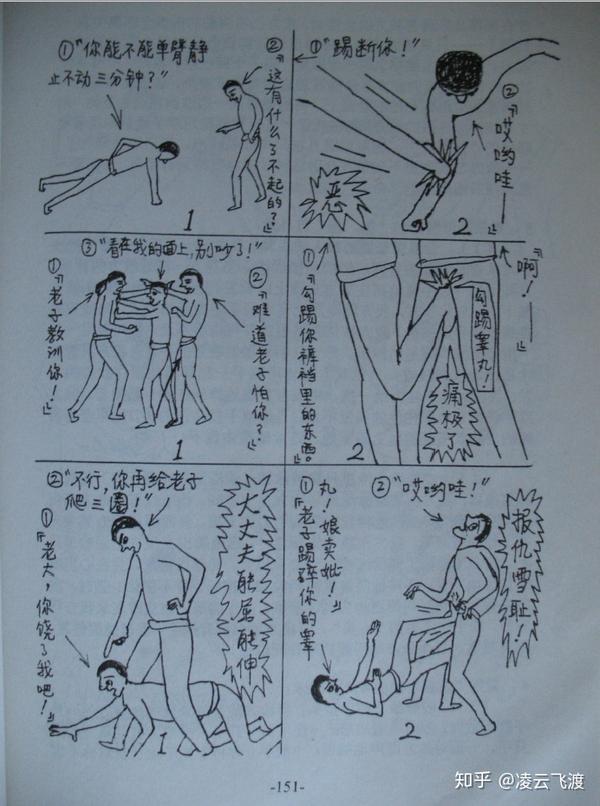 ①“你能不能单臂静
止不动三分钟？”
②“这有什么了不起的？”
1
①“踢断你！”
②“哎哟哇——”
恶
2
③“看在我的面上，别吵了！”
①“老子教训你！”
②“难道老子怕你？”
1
①“勾踢你裤裆里的东西。”
“啊！——”
勾踢睾丸！
痛极了
2
②“不行，你再给老子
爬三圈！”
①“老大，你饶了我吧！”
大丈夫能屈能伸
1
①“老子踢碎你的睾
丸！娘卖妣！”
②“哎哟哇！”
报仇雪耻！
2
-151-
知乎 @凌云飞渡